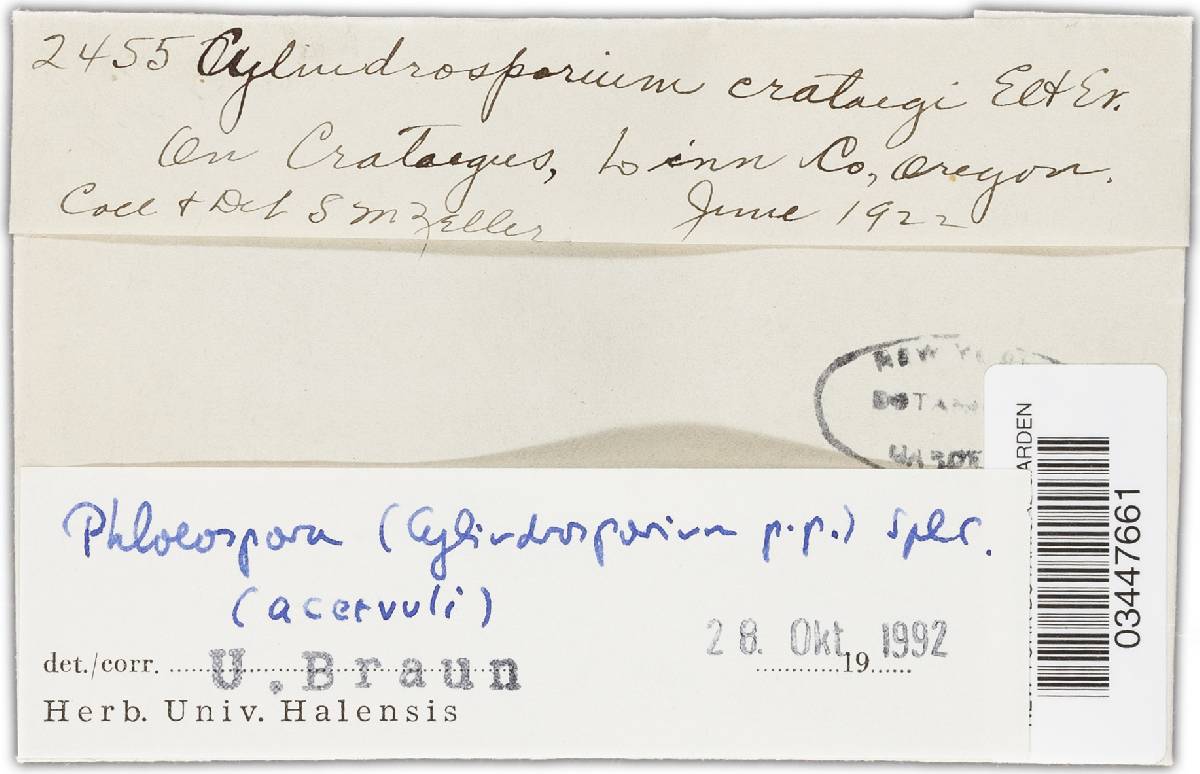 2455 Cylindrosporium crataegi El & Ev.
On Crataegus, Linn Co, Oregon.
Coll & Det S M Zeller June 1922
NEW YORK
BOTANI
GARDEN
Phloeospora (Cylindrosporium p.p.) spec.
(acervuli)
28. Okt. 1992
det./corr. U. Braun 19
Herb. Univ. Halensis
ARDEN
03447661